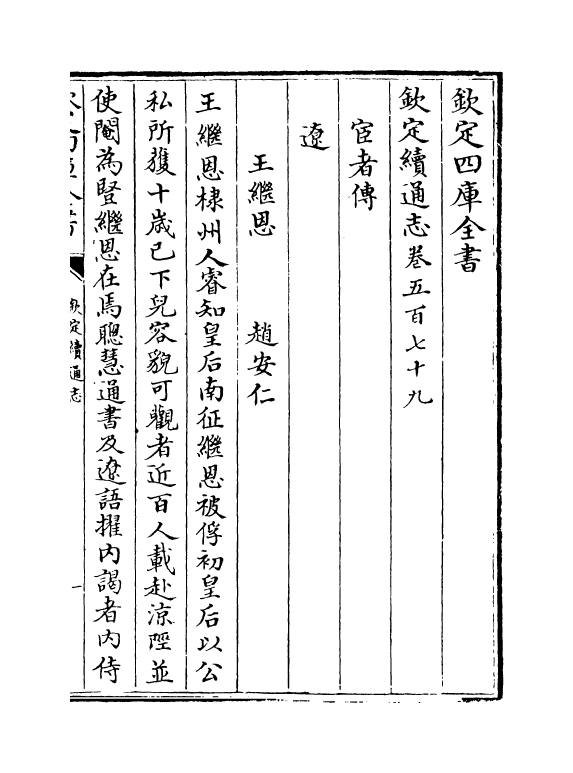 欽定四庫全書
欽定續通志卷五百七十九
宦者傳
遼
王繼恩　趙安仁
王繼恩棣州人睿知皇后南征繼恩被俘初皇后以公
私所獲十歳已下兒容貌可觀者近百人載赴涼陘並
使閹為豎繼恩在焉聰慧通書及遼語擢内謁者内侍
欽定續通志
一